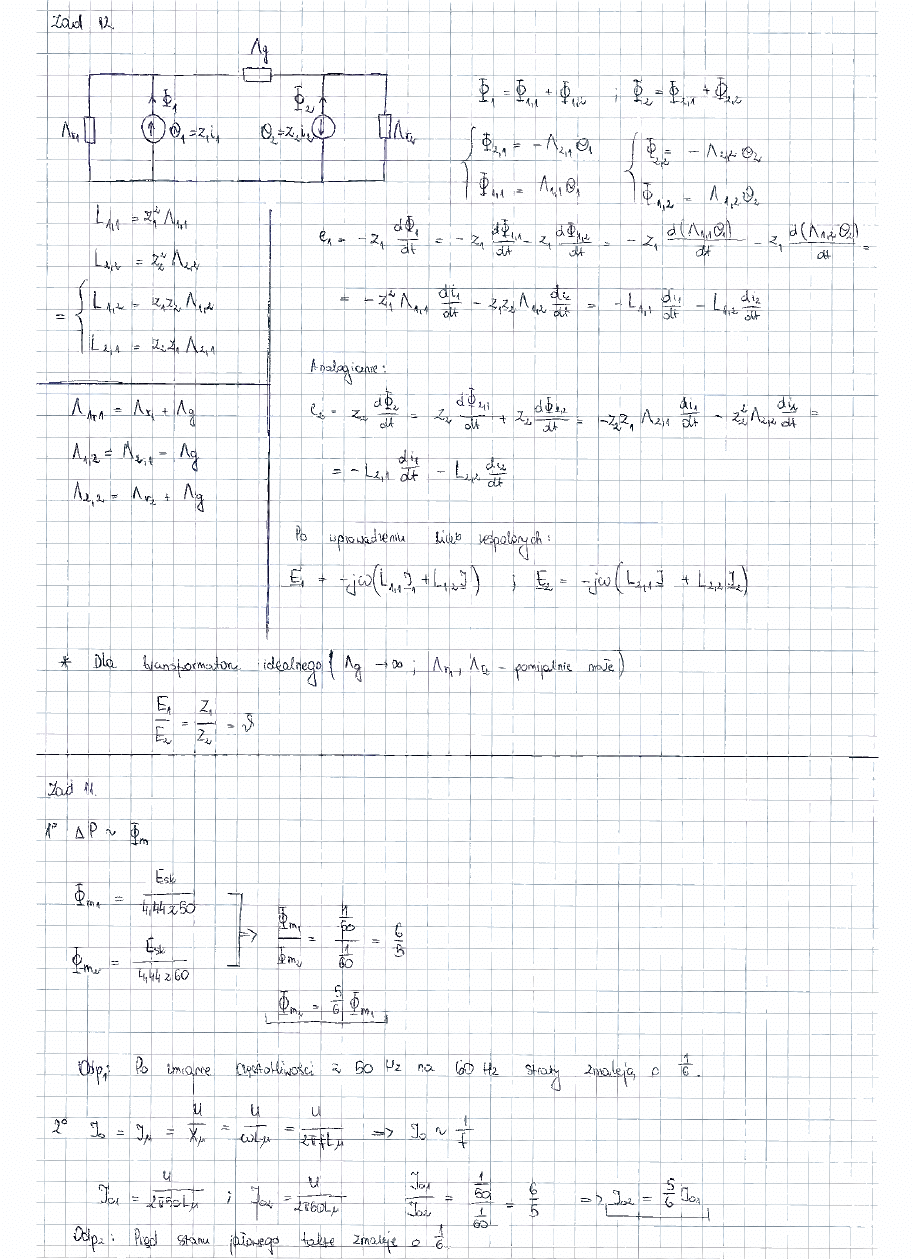 Zad 12.
Λg
Φ₁ = Φ₁,₁ + Φ₁,₂ ; Φ₂ = Φ₂,₁ + Φ₂,₂
Φ₁ Φ₂
Λr₁ Θ₁=z₁i₁ Θ₂=z₂i₂ Λr₂
Φ₂,₁ = -Λ₂,₁Θ₁ Φ₂,₂ = -Λ₂,₂Θ₂
Φ₁,₁ = Λ₁,₁Θ₁ Φ₁,₂ = Λ₁,₂Θ₂
L₁,₁ = z₁²Λ₁,₁
L₂,₂ = z₂²Λ₂,₂
= L₁,₂ = z₁z₂Λ₁,₂
L₂,₁ = z₂z₁Λ₂,₁
e₁ = -z₁ dΦ₁/dt = -z₁ dΦ₁,₁/dt - z₁ dΦ₁,₂/dt = -z₁ d(Λ₁,₁Θ₁)/dt - z₁ d(Λ₁,₂Θ₂)/dt =
= -z₁²Λ₁,₁ di₁/dt - z₁z₂Λ₁,₂ di₂/dt = -L₁,₁ di₁/dt - L₁,₂ di₂/dt
Λ₁,₁ = Λr₁ + Λg
Λ₁,₂ = Λ₂,₁ = Λg
Λ₂,₂ = Λr₂ + Λg
Analogicznie:
e₂ = z₂ dΦ₂/dt = z₂ dΦ₂,₁/dt + z₂ dΦ₂,₂/dt = -z₂z₁Λ₂,₁ di₁/dt - z₂²Λ₂,₂ di₂/dt =
= -L₂,₁ di₁/dt - L₂,₂ di₂/dt
Po wprowadzeniu liczb zespolonych:
E₁ = -jω(L₁,₁I₁ + L₁,₂I) ; E₂ = -jω(L₂,₁I + L₂,₂I₂)
* Dla transformatora idealnego (Λg → ∞ ; Λr₁, Λr₂ - pomijalnie małe)
E₁/E₂ = z₁/z₂ = ϑ
Zad 11.
1° ΔP ~ Φm
Φm₁ = Esk/4,44z50
Φm₂ = Esk/4,44z60
=> Φm₁/Φm₂ = (1/50)/(1/60) = 6/5
Φm₂ = 5/6 Φm₁
Odp₁: Po zmianie częstotliwości z 50 Hz na 60 Hz straty zmaleją o 1/6.
2° I₀ = Iμ = U/Xμ = U/ωLμ = U/2πfLμ => I₀ ~ 1/f
I₀₁ = U/2π50Lμ ; I₀₂ = U/2π60Lμ I₀₁/I₀₂ = (1/50)/(1/60) = 6/5 => I₀₂ = 5/6 I₀₁
Odp₂: Prąd stanu jałowego także zmaleje o 1/6